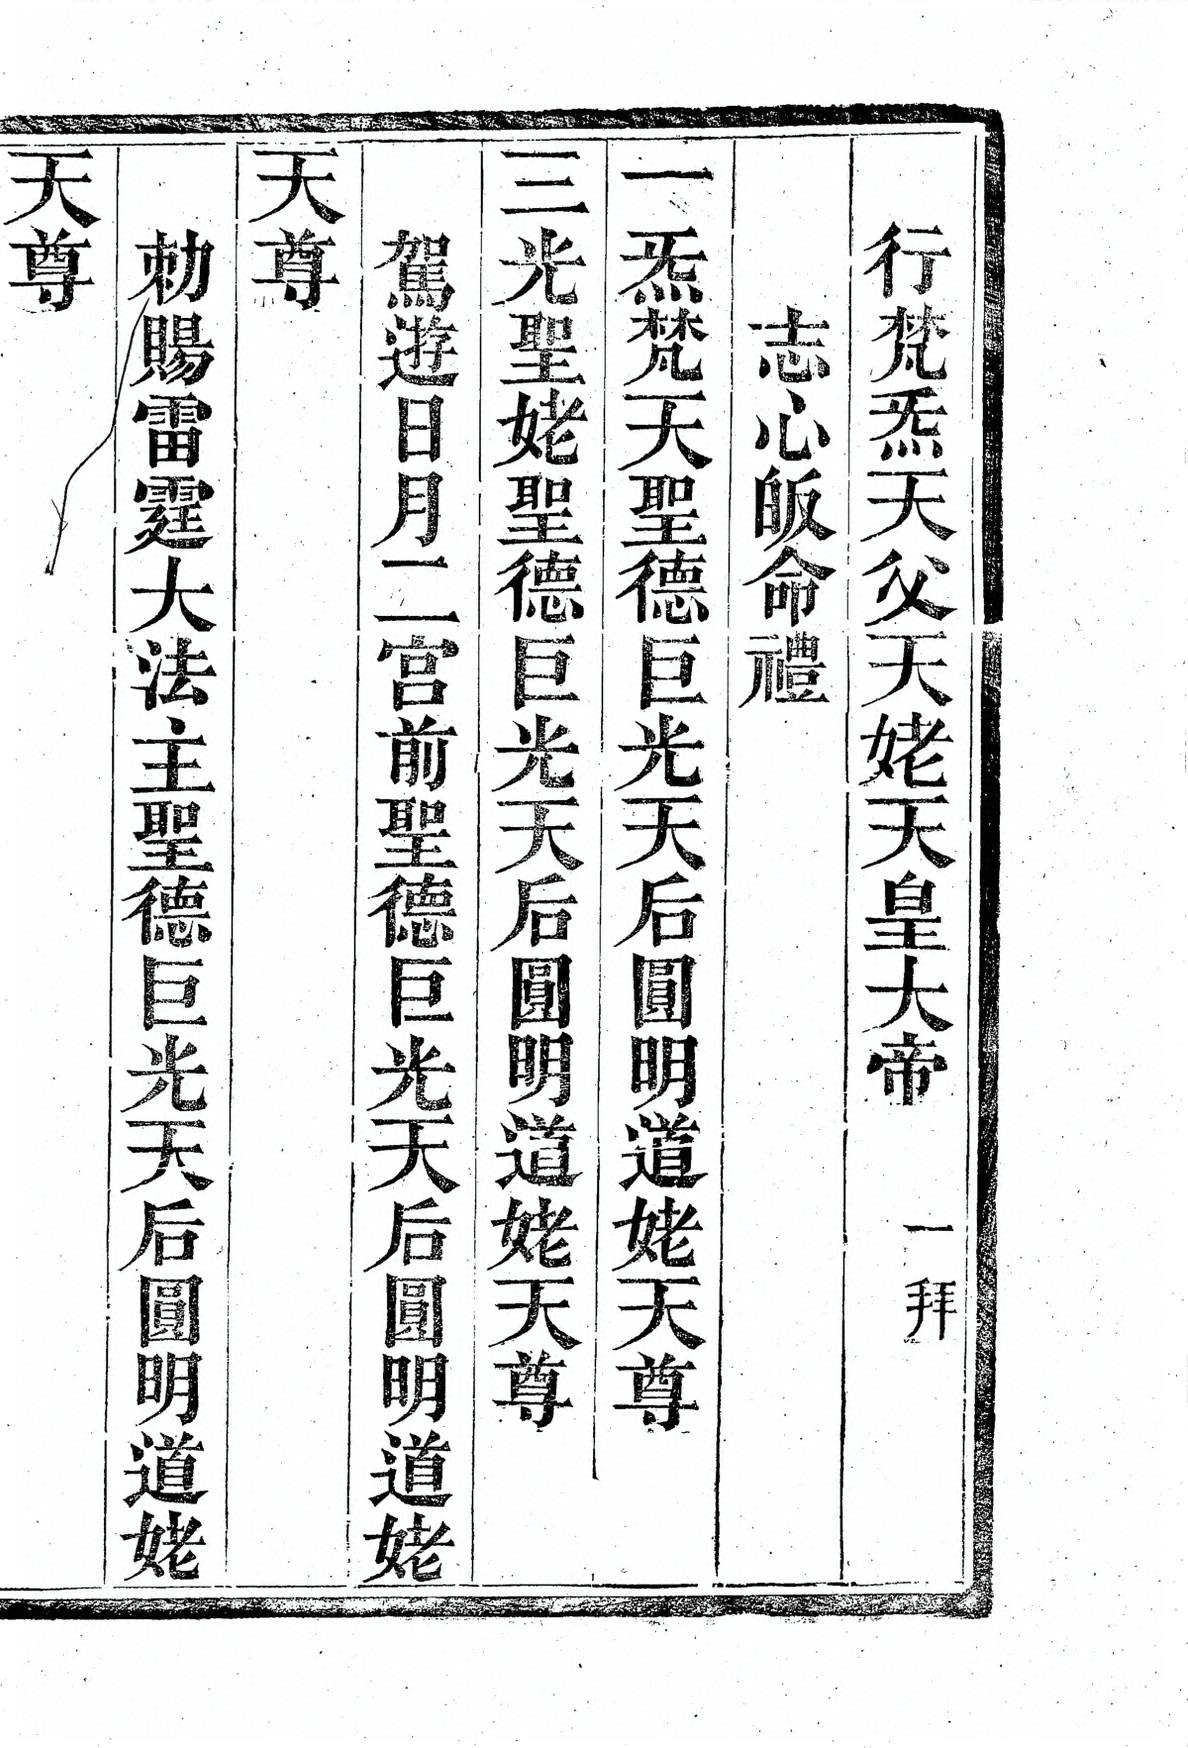 行梵炁天父天姥天皇大帝 一拜
志心皈命禮
一炁梵天聖德巨光天后圓明道姥天尊
三光聖姥聖德巨光天后圓明道姥天尊
駕遊日月二宮前聖德巨光天后圓明道姥
天尊
勅賜雷霆大法主聖德巨光天后圓明道姥
天尊